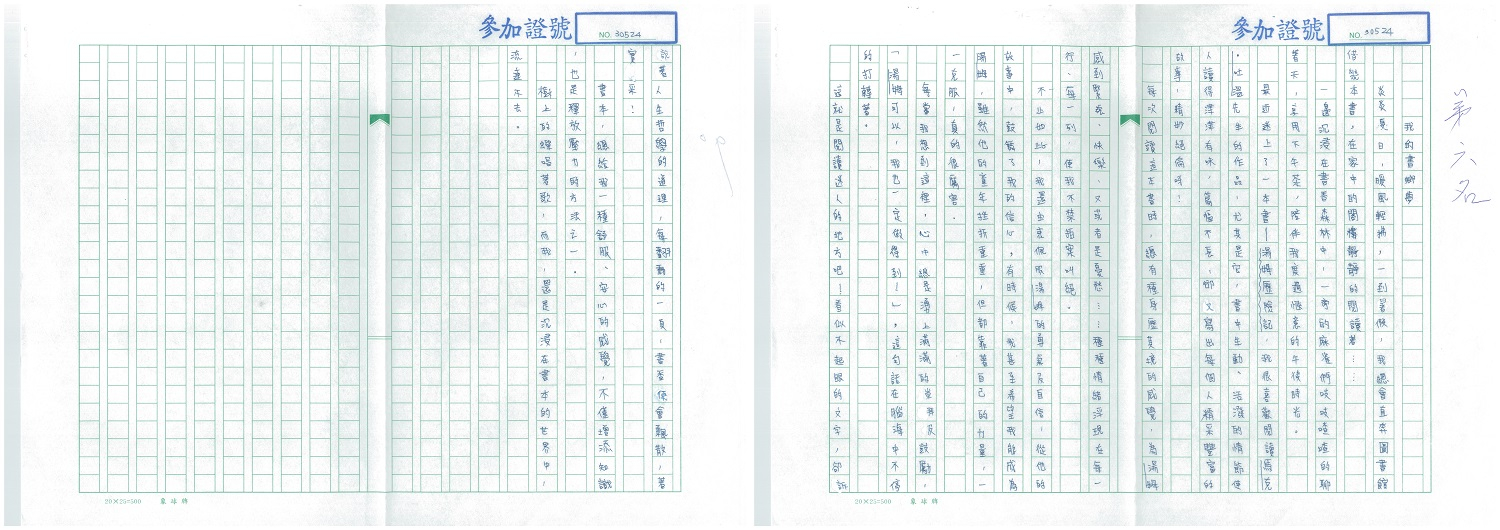 參加證號
NO. 30524
第六名
我的書鄉夢
炎炎夏日，暖風輕拂，一到暑假，我總會直奔圖書館
借幾本書，在家中的閣樓靜靜的閱讀著……
一邊沉浸在書香森林中，一旁的麻雀們吱吱喳喳的聊
著天，享用下午茶，陪伴我度過愜意的午後時光。
最近迷上了一本書—湯姆歷險記，我很喜歡閱讀馬克
・吐溫先生的作品，尤其是它，書中生動、活潑的情節使
人讀得津津有味，篇幅不長，卻又寫出每個人精采豐富的
故事，精妙絕倫呀！
每次閱讀這本書時，總有種身歷其境的感覺，為湯姆
感到緊張、快樂、又或者是憂愁……種種情緒浮現在每一
行、每一列，使我不禁語案叫絕。
不止如此，我還由衷佩服湯姆的勇氣及自信，從他的
故事中，鼓舞了我的信心，有時候，我甚至希望我能成為
湯姆，雖然他的童年挫折重重，但都靠著自己的力量，一
一克服，真的很厲害。
每當我想到這裡，心中總是湧上滿滿的崇拜及鼓勵，
「湯姆可以，我也一定做得到！」，這句話在腦海中不停
的打轉著。
這就是閱讀迷人的地方吧！看似不起眼的文字，卻訴
20×25=500 象球牌
參加證號
NO. 30524
說著人生哲學的道理，每翻動的一頁，書香便會飄散，著
實，采！
書本，總給我一種舒服、安心的感覺，不僅增添知識
，也是釋放壓力的方法之一。
樹上的蟬唱著歌，而我，還是沉浸在書本的世界中，
流連不去。
20×25=500 象球牌